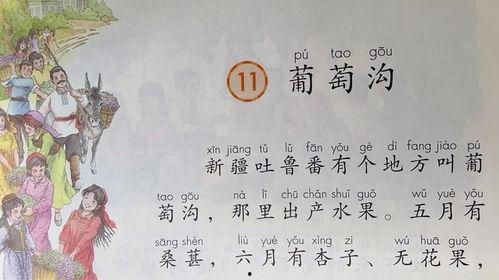 pú tao gōu
11 葡萄沟
xīn jiāng tǔ lǔ fān yǒu gè dì fang jiào pú
新疆吐鲁番有个地方叫葡
tao gōu nà lǐ chū chǎn shuǐ guǒ wǔ yuè yǒu
萄沟，那里出产水果。五月有
sāng shèn liù yuè yǒu xìng zi wú huā guǒ
桑葚，六月有杏子、无花果，